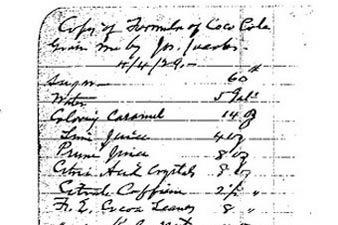 Copy of Formula of Coco Cola
Given me by Jos. Jacobs -
4/4/29. -
Sugar 60 #
Water 5 Gals
Coloring Caramel 14 oz
Lime Juice 4 oz
Prune Juice 8 oz
Citric Acid Crystals 8 oz
Citrate Caffein 2½ "
F. E. Cocoa Leaves 8 "